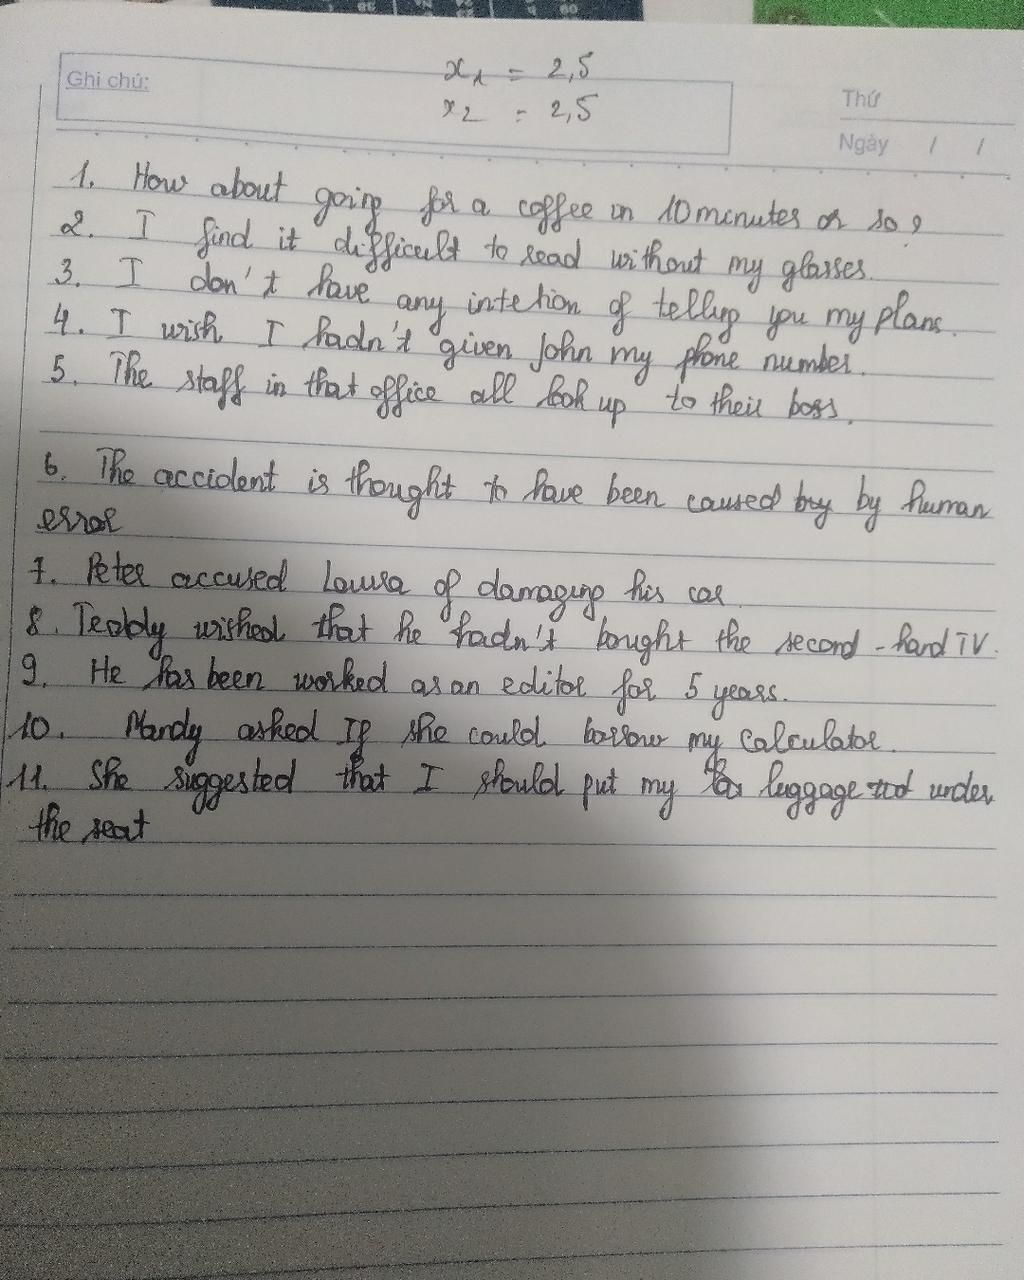 x1 = 2,5
Ghi chú:
x2 = 2,5
Thứ
Ngày / /
1. How about going for a coffee in 10 minutes or so?
2. I find it difficult to read without my glasses.
3. I don't have any intetion of telling you my plans.
4. I wish I hadn't given John my phone number.
5. The staff in that office all look up to their boss.
6. The accident is thought to have been caused by by human
error
7. Peter accused Laura of damaging his car
8. Teddy wished that he hadn't bought the second-hand TV.
9. He has been worked as an editor for 5 years.
10. Mandy asked If she could borrow my calculator.
11. She suggested that I should put my luggage under
the seat